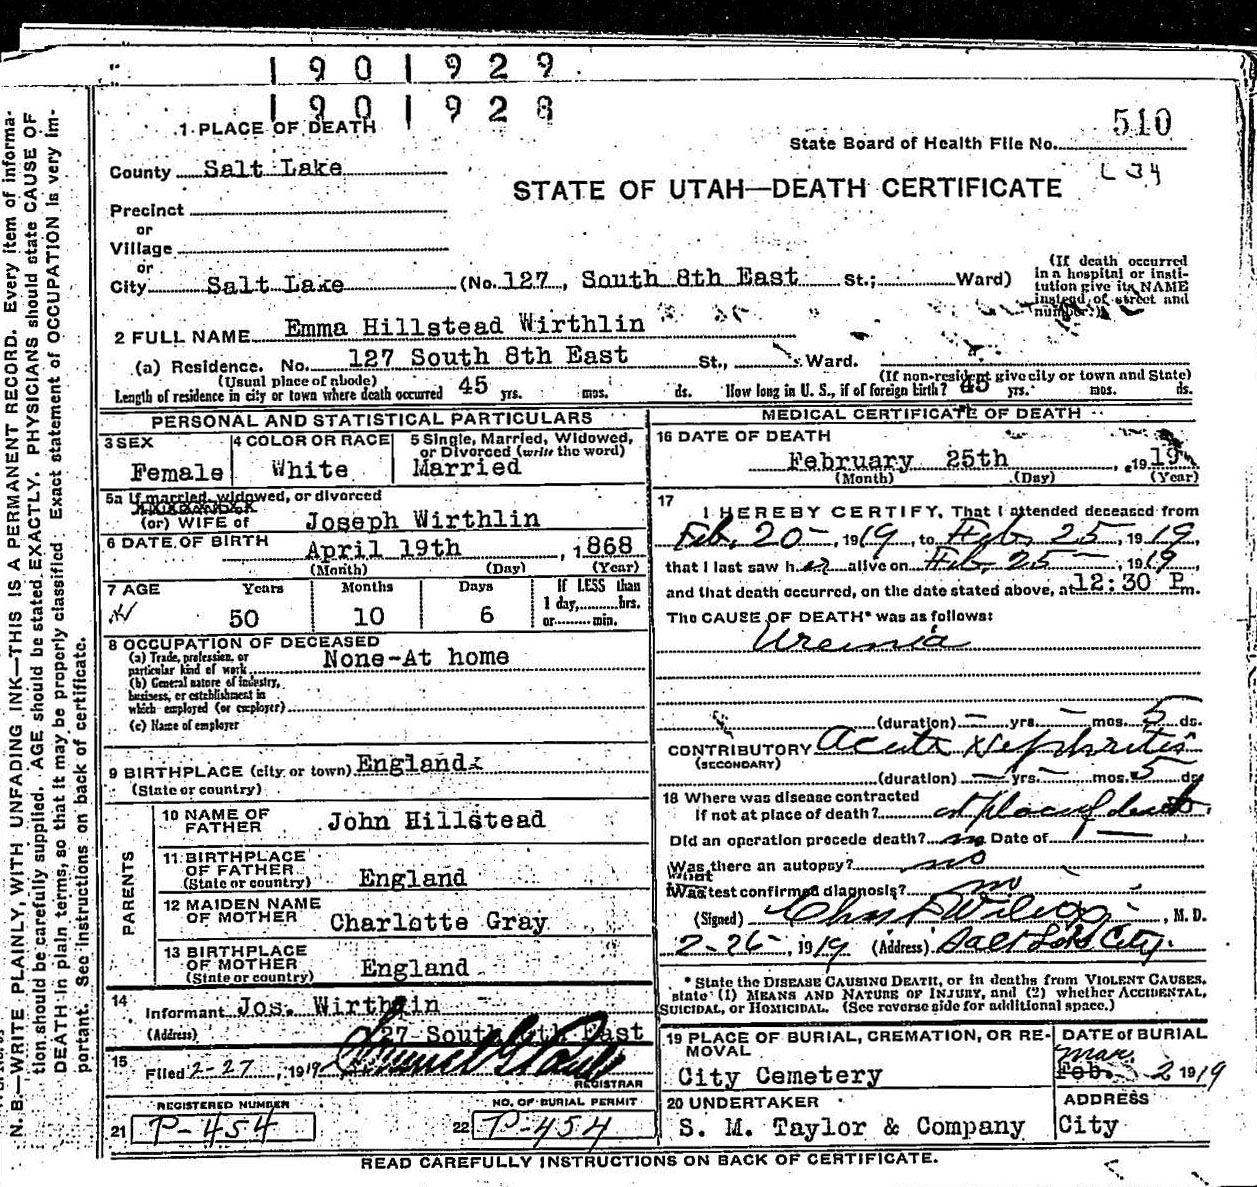 1901929
1901928
1 PLACE OF DEATH
510
State Board of Health File No.
L 34
County Salt Lake
STATE OF UTAH—DEATH CERTIFICATE
Precinct
or
Village
or
City Salt Lake (No. 127, South 8th East St.; Ward)
(If death occurred in a hospital or insti-
tution give its NAME
instead of street and
number.)
2 FULL NAME Emma Hillstead Wirthlin
(a) Residence. No. 127 South 8th East St., Ward.
(Usual place of abode) (If non-resident give city or town and State)
Length of residence in city or town where death occurred 45 yrs. mos. ds. How long in U. S., if of foreign birth? 45 yrs. mos. ds.
PERSONAL AND STATISTICAL PARTICULARS
3 SEX
Female
4 COLOR OR RACE
White
5 Single, Married, Widowed,
or Divorced (write the word)
Married
5a If married, widowed, or divorced
(or) WIFE of Joseph Wirthlin
6 DATE OF BIRTH
April 19th, 1868
(Month) (Day) (Year)
7 AGE Years Months Days
50 10 6
If LESS than
1 day, hrs.
or min.
8 OCCUPATION OF DECEASED
(a) Trade, profession, or
particular kind of work None-At home
(b) General nature of industry,
business, or establishment in
which employed (or employer)
(c) Name of employer
9 BIRTHPLACE (city or town) England
(State or country)
PARENTS
10 NAME OF
FATHER John Hillstead
11 BIRTHPLACE
OF FATHER
(State or country) England
12 MAIDEN NAME
OF MOTHER Charlotte Gray
13 BIRTHPLACE
OF MOTHER
(State or country) England
14
Informant Jos. Wirthlin
(Address) 127 South 8th East
15
Filed 2-27, 1919
REGISTRAR
REGISTERED NUMBER
21 P-454
NO. OF BURIAL PERMIT
22 P-454
MEDICAL CERTIFICATE OF DEATH
16 DATE OF DEATH
February 25th, 1919
(Month) (Day) (Year)
17
I HEREBY CERTIFY, That I attended deceased from
Feb. 20-, 1919, to Feb 25, 1919,
that I last saw her alive on Feb 25-, 1919,
and that death occurred, on the date stated above, at 12:30 P m.
The CAUSE OF DEATH* was as follows:
Uremia
(duration) — yrs. — mos. 5 ds.
CONTRIBUTORY Acute Nephritis
(SECONDARY)
(duration) — yrs — mos. 5 ds
18 Where was disease contracted
If not at place of death? at place of death
Did an operation precede death? no Date of —
Was there an autopsy? no
What
Was test confirmed diagnosis? no
(Signed) Chas F Wilcox, M. D.
2-26-, 1919 (Address) Salt Lake City.
* State the DISEASE CAUSING DEATH, or in deaths from VIOLENT CAUSES,
state (1) MEANS AND NATURE OF INJURY, and (2) whether ACCIDENTAL,
SUICIDAL, or HOMICIDAL. (See reverse side for additional space.)
19 PLACE OF BURIAL, CREMATION, OR RE-
MOVAL
City Cemetery
DATE of BURIAL
Mar.
Feb. 2 1919
20 UNDERTAKER
S. M. Taylor & Company
ADDRESS
City
READ CAREFULLY INSTRUCTIONS ON BACK OF CERTIFICATE.
N. B.—WRITE PLAINLY, WITH UNFADING INK—THIS IS A PERMANENT RECORD. Every item of informa-
tion should be carefully supplied. AGE should be stated EXACTLY. PHYSICIANS should state CAUSE OF
DEATH in plain terms, so that it may be properly classified. Exact statement of OCCUPATION is very im-
portant. See instructions on back of certificate.